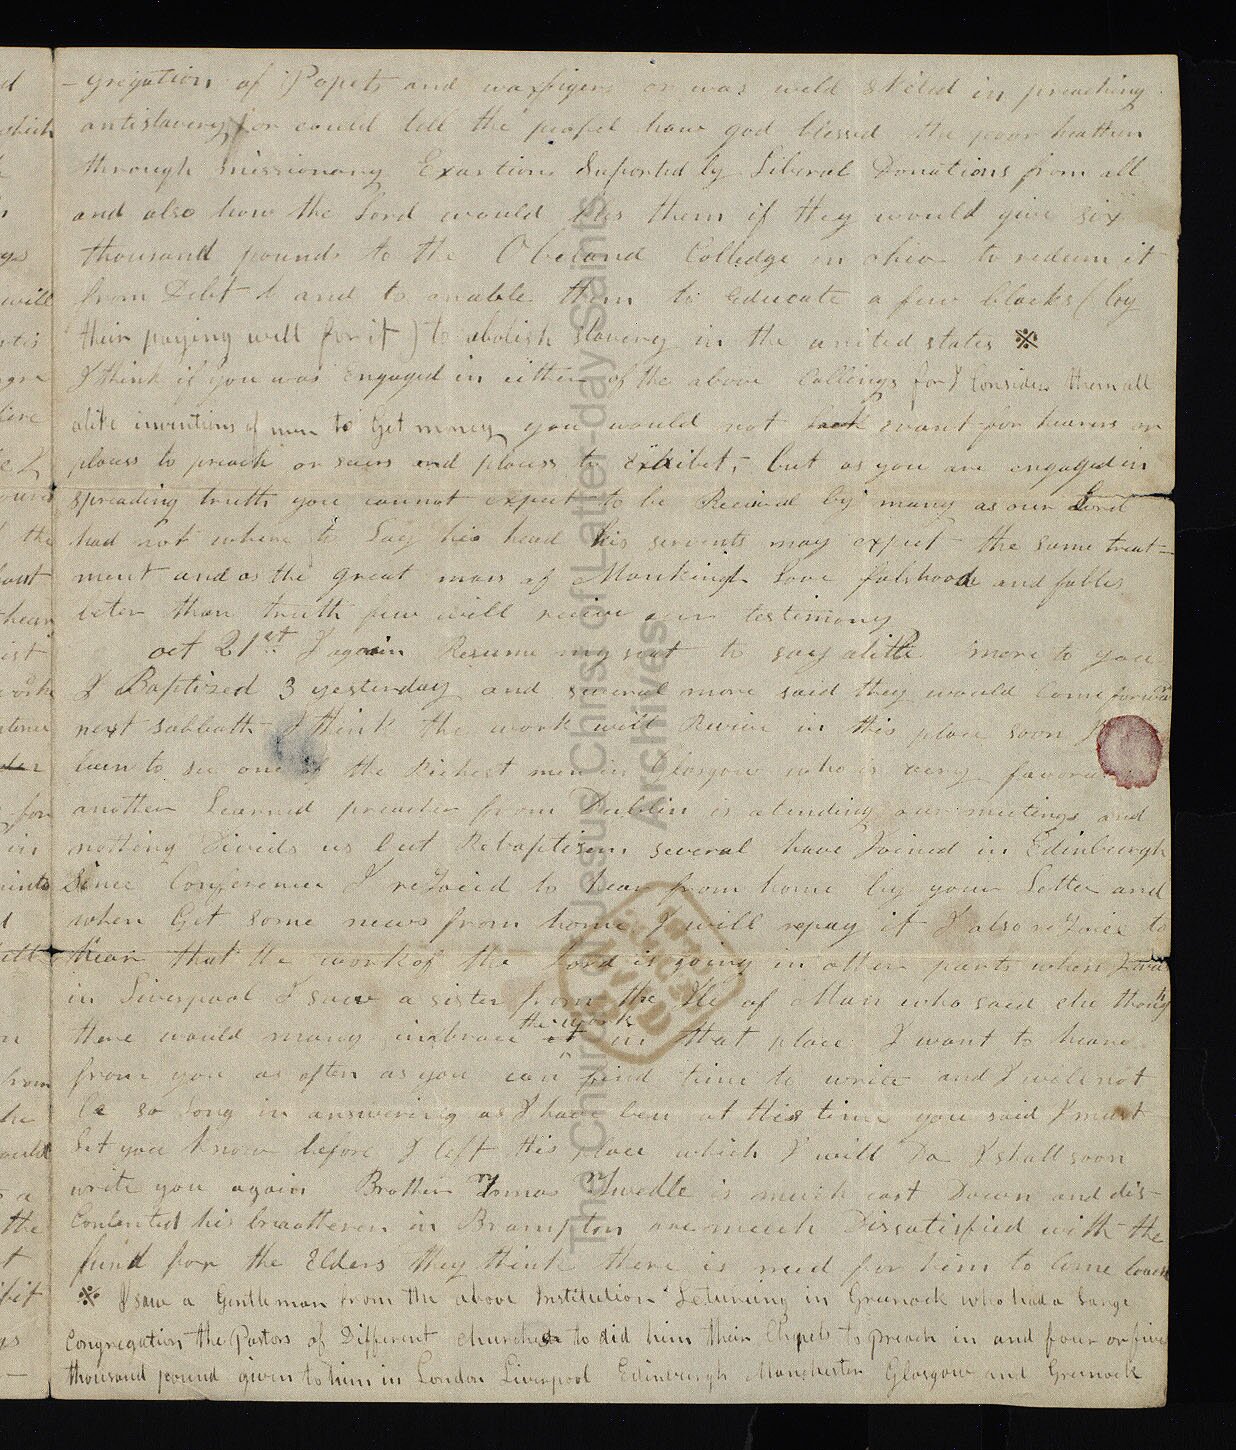 -gregation of Popets and waxfigers or was well skiled in preaching
antislavery, or could tell the peopel how god blessed the poor heathen
through missionary Exartions Suported by Liberal Donations from all
and also how the Lord would bles them if they would give six
thousand pounds to the Oberland Colledge in ohio to redeem it
from Debt & and to anable them to educate a few blacks (by
their paying well for it) to abolish slavery in the united states ※
I think if you was engaged in either of the above Callings for I Consider them all
alike inventions of men to Get money you would not want for hearers or
places to preach or seers and places to Exhibet, but as you are engaged in
spreading truth you cannot expect to be Received by many as our Lord
had not where to Lay his head his servents may expect the same treat=
ment and as the great mass of Mankind Love falshoods and fables
beter than truth few will recive our testimony
oct 21st I again Resume my seat to say alittle more to you
I Baptized 3 yesterday and several more said they would Come forward
next sabbath I think the work will Revive in this place soon I
been to see one of the Richest men in Glasgow who is very favora
another Learned preacher from Dublin is atending our meetings and
nothing Divids us but Rebaptism several have Joined in Edinburgh
Since Conference I reJoiced to hear from home by your Letter and
when Get some news from home I will repay it I also reJoice to
hear that the work of the Lord is going in other parts when I was
in Liverpool I saw a sister from the Ile of Man who said she thought
there would many imbrace it the work in that place I want to heare
from you as often as you can find time to write and I will not
be so Long in answering as I have ben at this time you said I must
Let you know before I left this place which I will Do I shall soon
write you again Brother Twedle is much cast Down and dis-
Contented his braotheren in Brampton are much Dissatisfied with the
fund for the Elders they think there is need for him to Come back
※ I saw a Gentleman from the above Institution Leturing in Greenock who had a Large
Congregation the Pastors of Different churches to did him their Chapels to preach in and four or five
thousand pound given to him in London Liverpool Edinburgh Manchester Glasgow and Greenock
The Church of Jesus Christ of Latter-day Saints
Archives